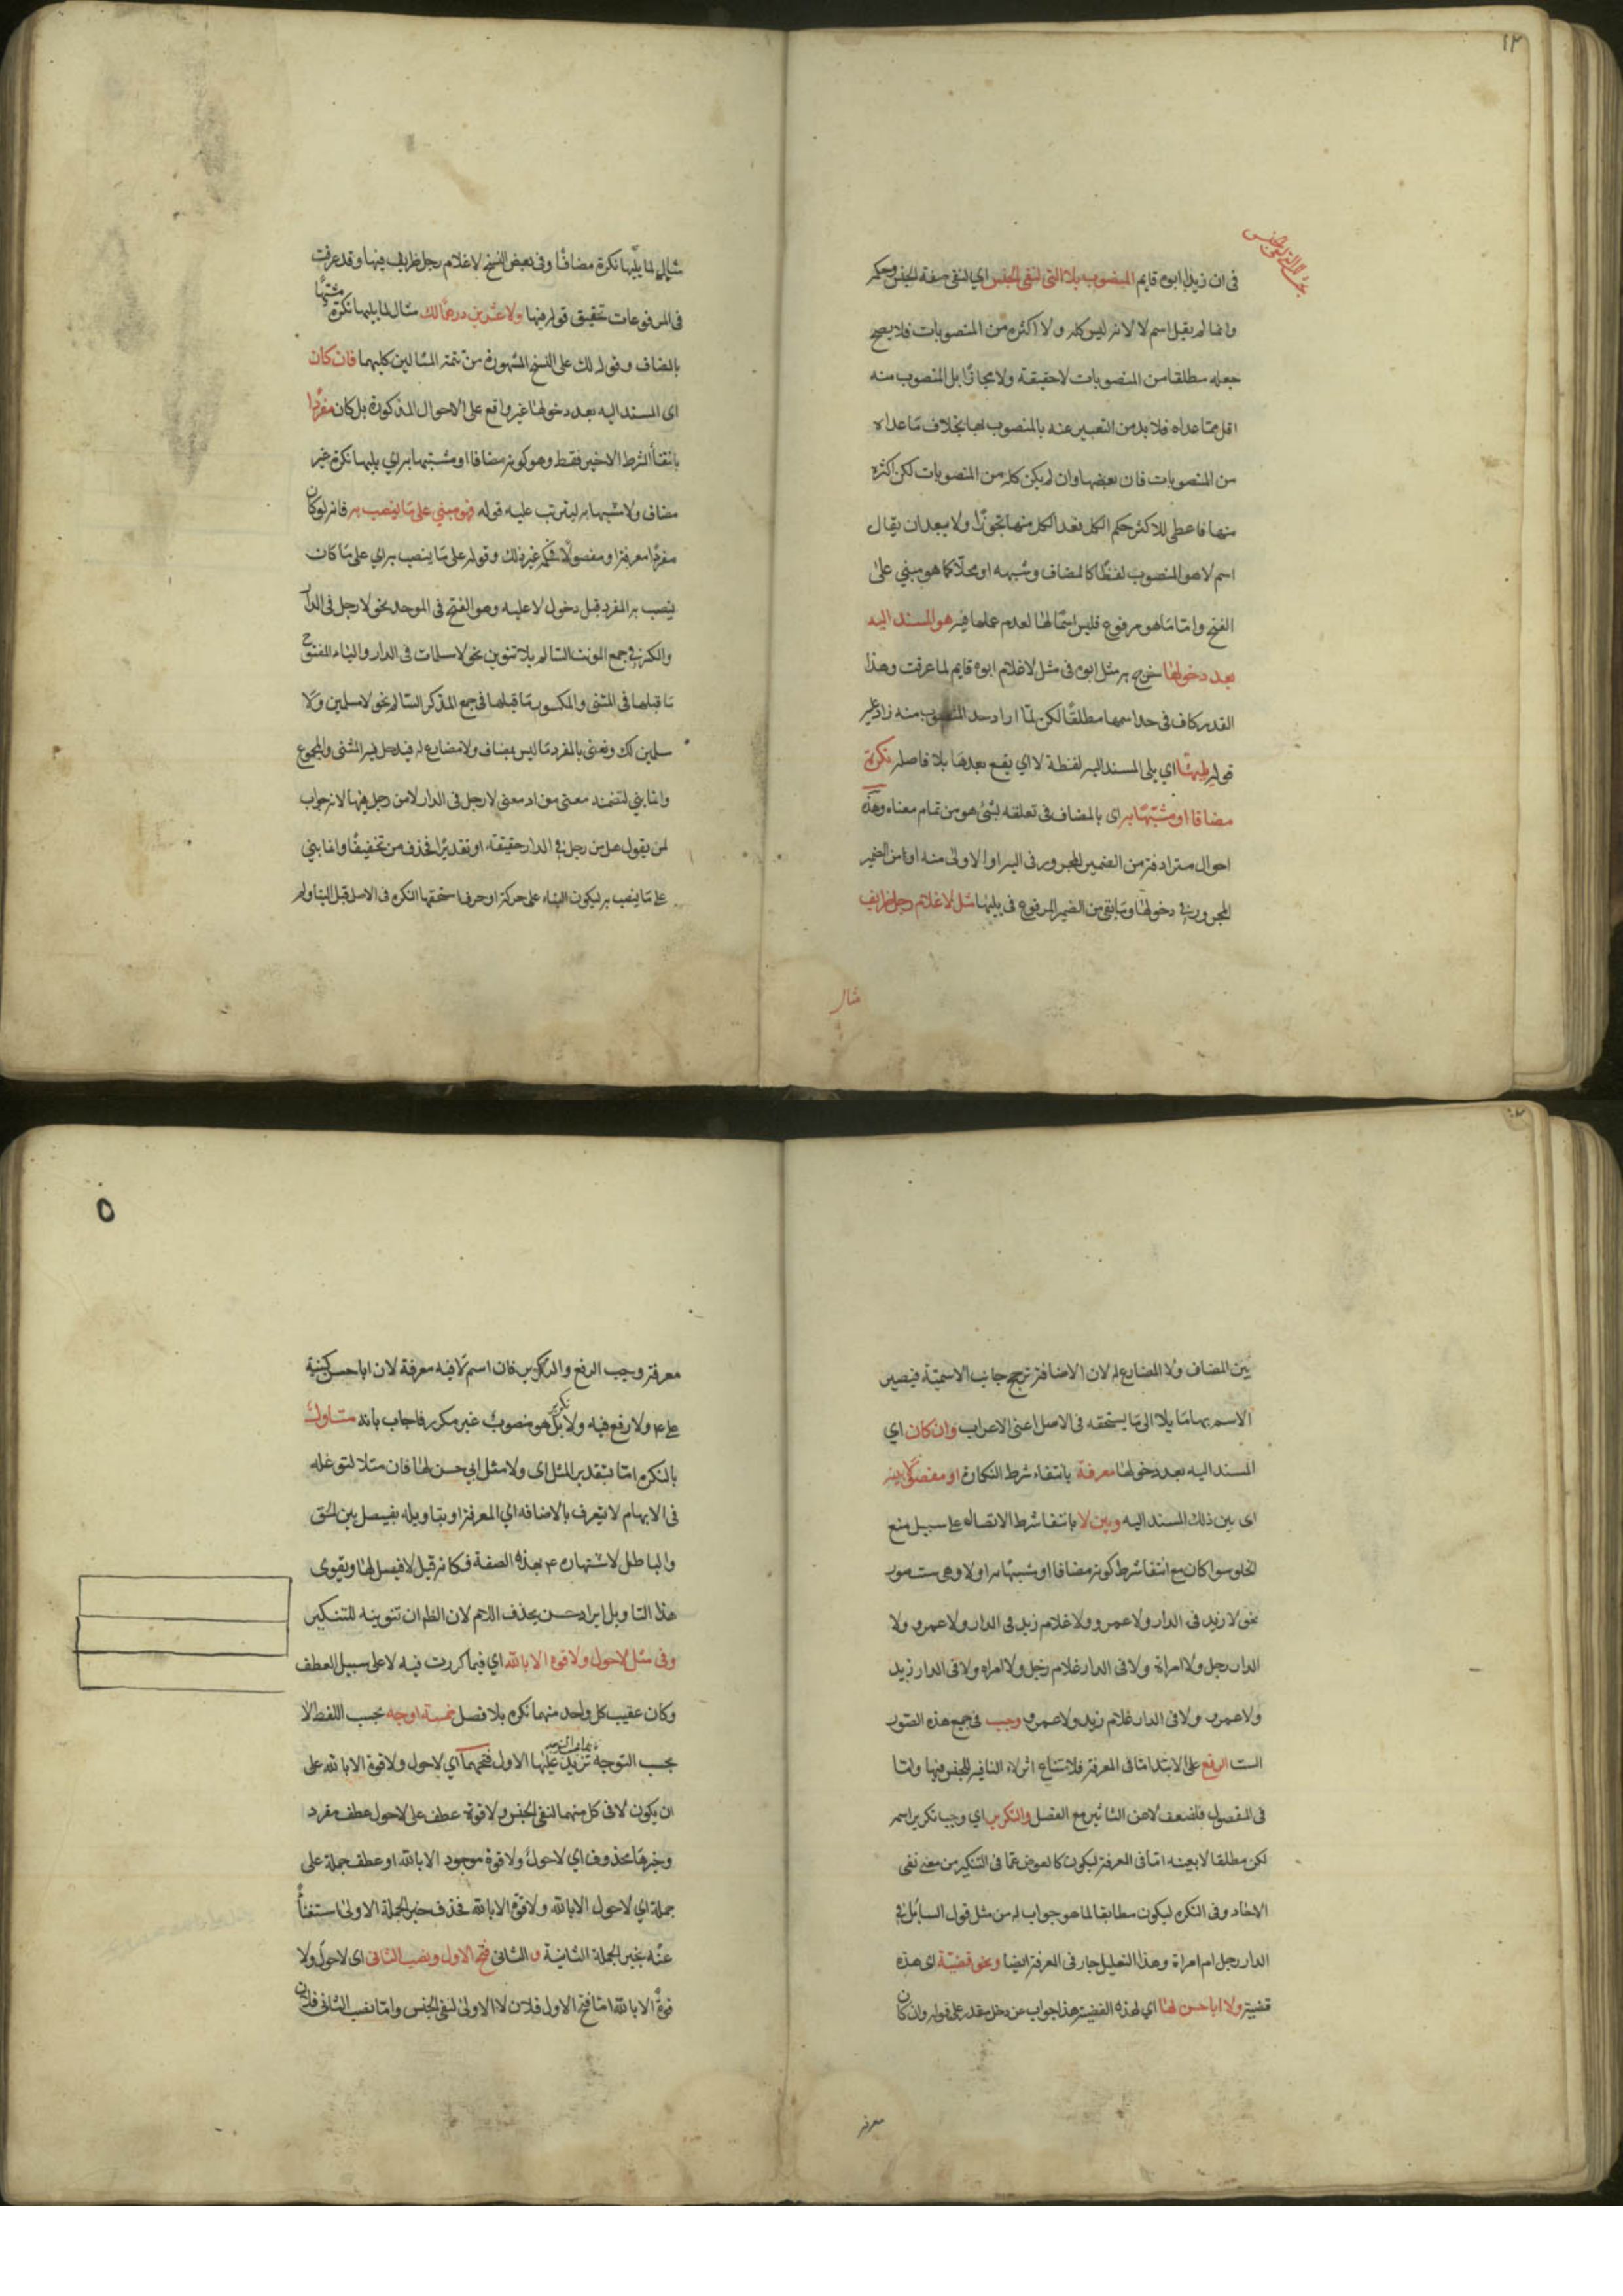 ١٢
في ان زيدا ابوه قايم المنصوب بلا التي لنفي الجنس اي لنفي صفة الجنس وحكمه
وانما لم يقل اسم لا لانه ليس كله ولا اكثره من المنصوبات فلا يصح
جعله مطلقا من المنصوبات لا حقيقة ولا مجازا بل المنصوب منه
اقل مما عداه فلا بد من التعبير عنه بالمنصوب بها بخلاف ما عداه
من المنصوبات فان بعضها وان لم يكن كله من المنصوبات لكن اكثره
منها فاعطى للاكثر حكم الكل فعد الكل منها تجوزا ولا يبعد ان يقال
اسم لا هو المنصوب لفظا كالمضاف وشبهه او محلا كما هو مبني على
الفتح واما ما هو مرفوع فليس اسما لها لعدم عملها فيه هو المسند اليه
بعد دخولها خرج به مثل ابوه في مثل لا غلام ابوه قايم لما عرفت وهذا
القدر كاف في حد اسمها مطلقا لكن لما اراد حد المنصوب منه زاد عليه
قوله يليها اي يلي المسند اليه لفظة لا اي يقع بعدها بلا فاصله نكرة
مضافا او مشبها به اي بالمضاف في تعلقه بشئ هو من تمام معناه وهذه
احوال مترادفة من الضمير المجرور في اليه او الاولى منه او من الضمير
المجرور في دخولها وما بقي من الضمير المرفوع في يليها مثل لا غلام رجل ظريف
مثال
مثال لما يليها نكرة مضافا وفي بعض النسخ لا غلام رجل ظريف فيها وقد عرفت
في المرفوعات تحقيق قوله فيها ولا عشرين درهما لك مثال لما يليها نكرة مشبها
بالمضاف وقوله لك على النسخ المشهورة من تتمة المثالين كليهما فان كان
اي المسند اليه بعد دخولها غير واقع على الاحوال المذكورة بل كان مفردا
بانتفأ الشرط الاخير فقط وهو كونه مضافا او مشبها به اي يليها نكرة غير
مضاف ولا شبها به ليترتب عليه قوله فهو مبني على ما ينصب به فانه لو كان
مفردا معرفة او مفصولا فحكمه غير ذلك وقوله على ما ينصب به اي على ما كان
ينصب به المفرد قبل دخول لا عليه وهو الفتح في الموحد نحو لا رجل في الدار
والكسر في جمع المونث السالم بلا تنوين نحو لا مسلمات في الدار والياء المفتوح
ما قبلها في المثنى والمكسور ما قبلها في جمع المذكر السالم نحو لا مسلمين ولا
مسلمين لك ونعني بالمفرد ما ليس بمضاف ولا مضارع له فيدخل فيه المثنى والمجموع
وانما بني لتضمنه معنى من اذ معنى لا رجل في الدار لا من رجل فيها لانه جواب
لمن يقول هل من رجل في الدار حقيقة او تقديرا فحذف من تخفيفا وانما بني
على ما ينصب به ليكون البناء على حركة او حرف استحقها النكره في الاصل قبل البنا ولم
بين المضاف ولا المضارع له لان الاضافة ترجح جانب الاسمية فيصير
الاسم بها مايلا الى ما يستحقه في الاصل اعني الاعراب وان كان اي
المسند اليه بعد دخولها معرفة بانتفاء شرط النكارة او مفصولا بينه
اي بين ذلك المسند اليه وبين لا بانتفا شرط الاتصاله على سبيل منع
الخلو سوا كان مع انتفا شرط كونه مضافا او مشبها به او لا وهي ست صور
نحو لا زيد في الدار ولا عمرو ولا غلام زيد في الدار ولا عمرو ولا
الدار رجل ولا امراة ولا في الدار غلام رجل ولا امراه ولا في الدار زيد
ولا عمرو ولا في الدار غلام زيد ولا عمرو وجب في جميع هذه الصور
الست الرفع على الابتدا اما في المعرفة فلامتناع اثر لاء النافية للجنس فيها واما
في المفصول فلضعف لا عن التاثير مع الفصل والتكرير اي وجب تكرير اسمه
لكن مطلقا لا بعينه اما في المعرفة ليكون كالعوض عما في التنكير من معنى نفي
الاحاد وفي النكره ليكون مطابقا لما هو جواب له من مثل قول السائل في
الدار رجل ام امراة وهذا التعليل جار في المعرفة ايضا ونحو قضية اي هذه
قضية ولا ابا حسن لها اي لهذه القضية هذا جواب عن دخل مقدر على قوله وان كان
معرفة
٥
معرفة وجب الرفع والتكرير فان اسم لا فيه معرفة لان ابا حسن كنية
علي ع ولا رفع فيه ولا تكرير بل هو منصوب غير مكرر فاجاب بانه متاول
بالنكره اما بتقدير المثل اي ولا مثل ابي حسن لها فان مثلا لتوغله
في الابهام لا يتعرف بالاضافه اي المعرفة او بتاويله بفيصل بين الحق
والباطل لاشتهاره ع بهذه الصفة فكانه قيل لا فيصل لها ويقوى
هذا التاويل ايراد حسن بحذف اللام لان الظ ان تنوينه للتنكير
وفي مثل لا حول ولا قوه الا بالله اي فيما كررت فيه لا على سبيل العطف
وكان عقيب كل واحد منهما نكره بلا فصل خمسة اوجه بحسب اللفظ لا
بحسب التوجه تزيد عليها الاول فتحهما اي لا حول ولا قوة الا بالله على
ان يكون لا في كل منهما لنفي الجنس ولا قوة عطف على لا حول عطف مفرد
وخبرها محذوف اي لا حول ولا قوة موجود الا بالله او عطف جملة على
جملة اي لا حول الا بالله ولا قوة الا بالله فحذف خبر الجملة الاولى استغنأ
عنه بخبر الجملة الثانية و الثاني فتح الاول ونصب الثاني اي لا حول ولا
قوة الا بالله اما فتح الاول فلان لا الاولى لنفي الجنس واما نصب الثاني فلان